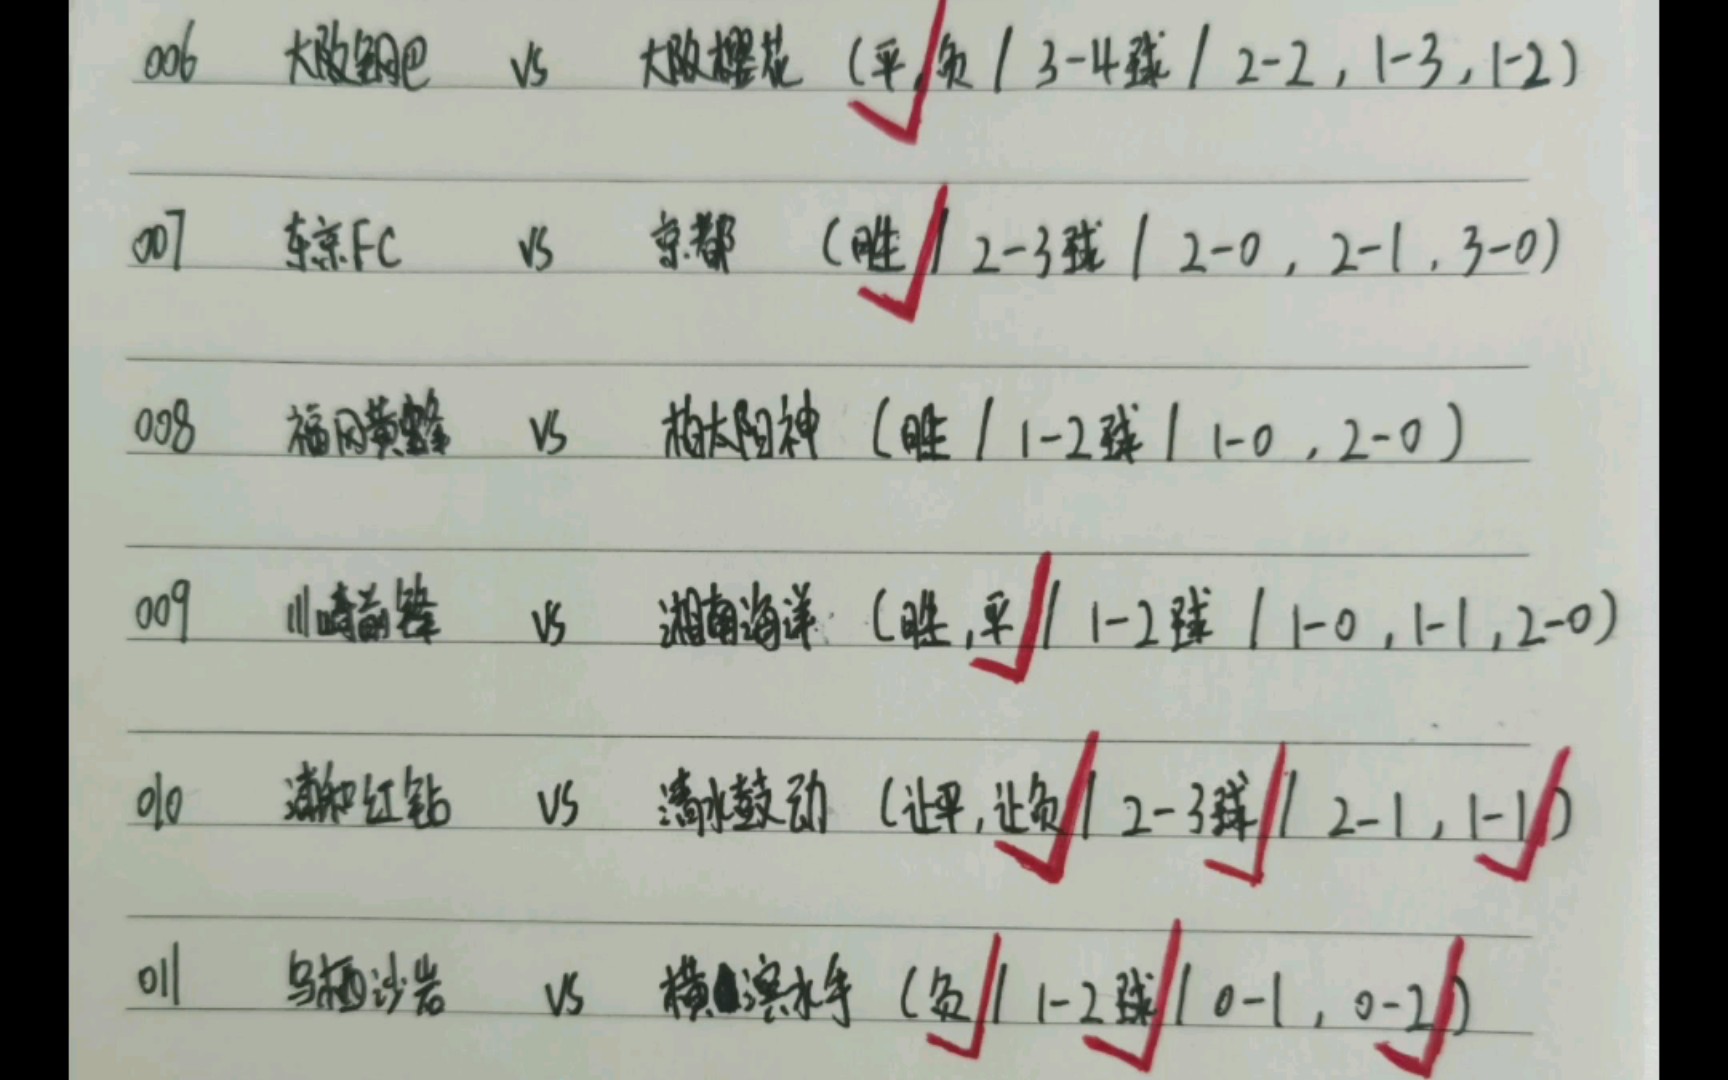 006 大阪钢巴 vs 大阪樱花 (平,负 / 3-4球 / 2-2, 1-3, 1-2)
007 东京FC vs 京都 (胜 / 2-3球 / 2-0, 2-1, 3-0)
008 福冈黄蜂 vs 柏太阳神 (胜 / 1-2球 / 1-0, 2-0)
009 川崎前锋 vs 湘南海洋 (胜,平 / 1-2球 / 1-0, 1-1, 2-0)
010 浦和红钻 vs 清水鼓动 (让平,让负 / 2-3球 / 2-1, 1-1)
011 鸟栖沙岩 vs 横滨水手 (负 / 1-2球 / 0-1, 0-2)